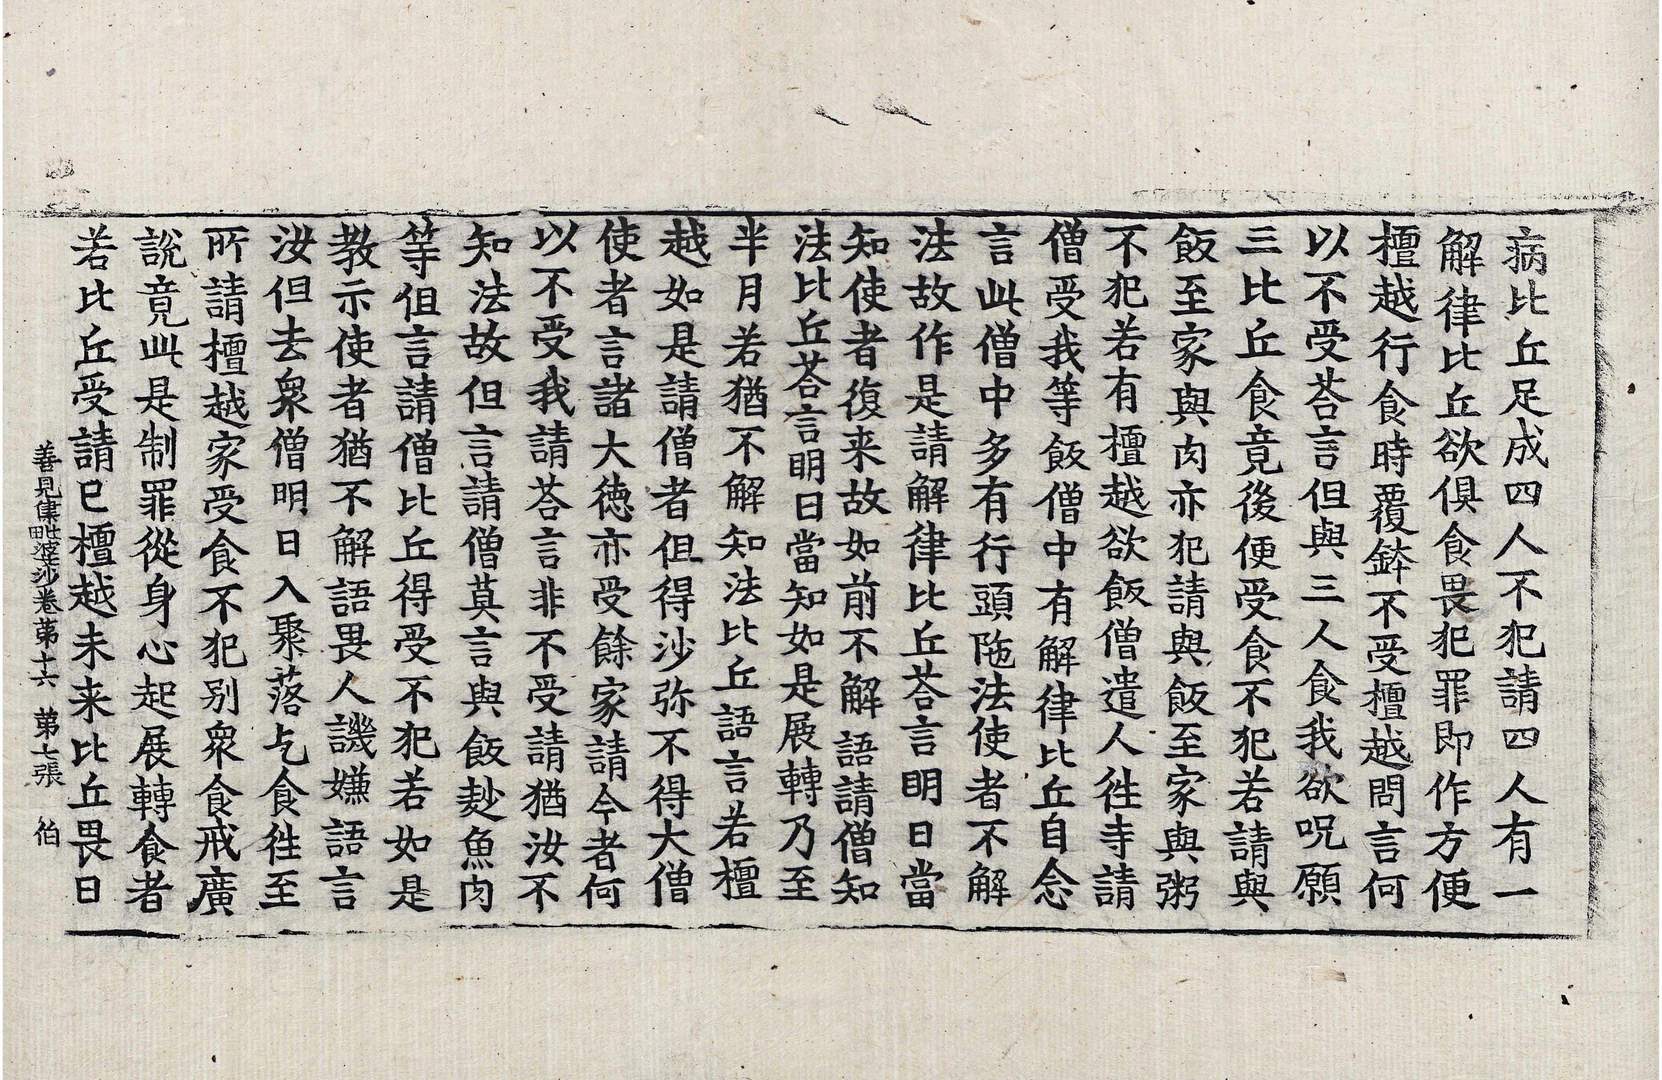 病比丘足成四人不犯請四人有一
解律比丘欲俱食畏犯罪即作方便
檀越行食時覆鉢不受檀越問言何
以不受荅言但與三人食我欲呪願
三比丘食竟後便受食不犯若請與
飯至家與肉亦犯請與飯至家與粥
不犯若有檀越欲飯僧遣人往寺請
僧受我等飯僧中有解律比丘自念
言此僧中多有行頭陁法使者不解
法故作是請解律比丘荅言明日當
知使者復来故如前不解語請僧知
法比丘荅言明日當知如是展轉乃至
半月若猶不解知法比丘語言若檀
越如是請僧者但得沙弥不得大僧
使者言諸大徳亦受餘家請今者何
以不受我請荅言非不受請猶汝不
知法故但言請僧莫言與飯麨魚肉
等但言請僧比丘得受不犯若如是
教示使者猶不解語畏人譏嫌語言
汝但去衆僧明日入聚落乞食往至
所請檀越家受食不犯别衆食戒廣
說竟此是制罪從身心起展轉食者
若比丘受請已檀越未来比丘畏日
善見集毗婆沙卷苐十六 苐七張 伯